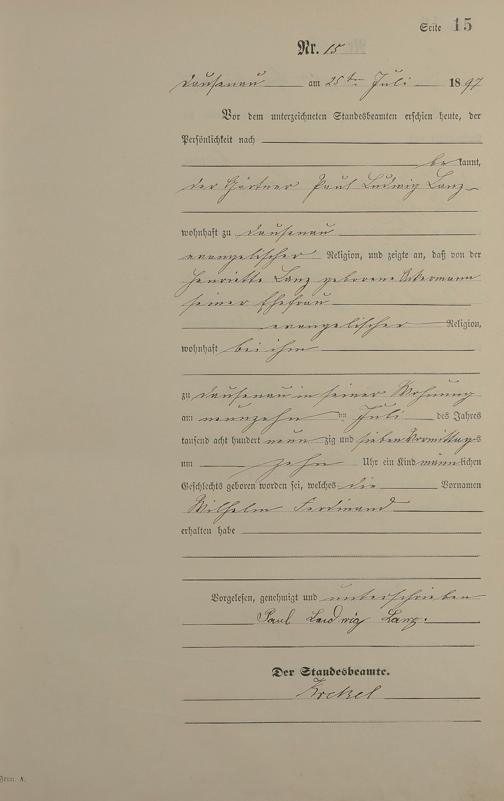 Seite 15
Nr. 15
Dausenau am 25ten Juli 1897
Vor dem unterzeichneten Standesbeamten erschien heute, der
Persönlichkeit nach
be kannt,
der Gärtner Paul Ludwig Lanz
wohnhaft zu Dausenau
evangelischer Religion, und zeigte an, daß von der
Henriette Lanz geborene Ackermann
seiner Ehefrau
evangelischer Religion,
wohnhaft bei ihm
zu Dausenau in seiner Wohnung
am neunzehn ten Juli des Jahres
tausend acht hundert neun zig und sieben Vormittags
um zehn Uhr ein Kind männlichen
Geschlechts geboren worden sei, welches die Vornamen
Wilhelm Ferdinand
erhalten habe
Vorgelesen, genehmigt und unterschrieben
Paul Ludwig Lanz.
Der Standesbeamte.
Form. A.